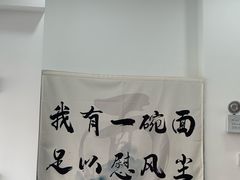 我有一碗面
足以慰风尘